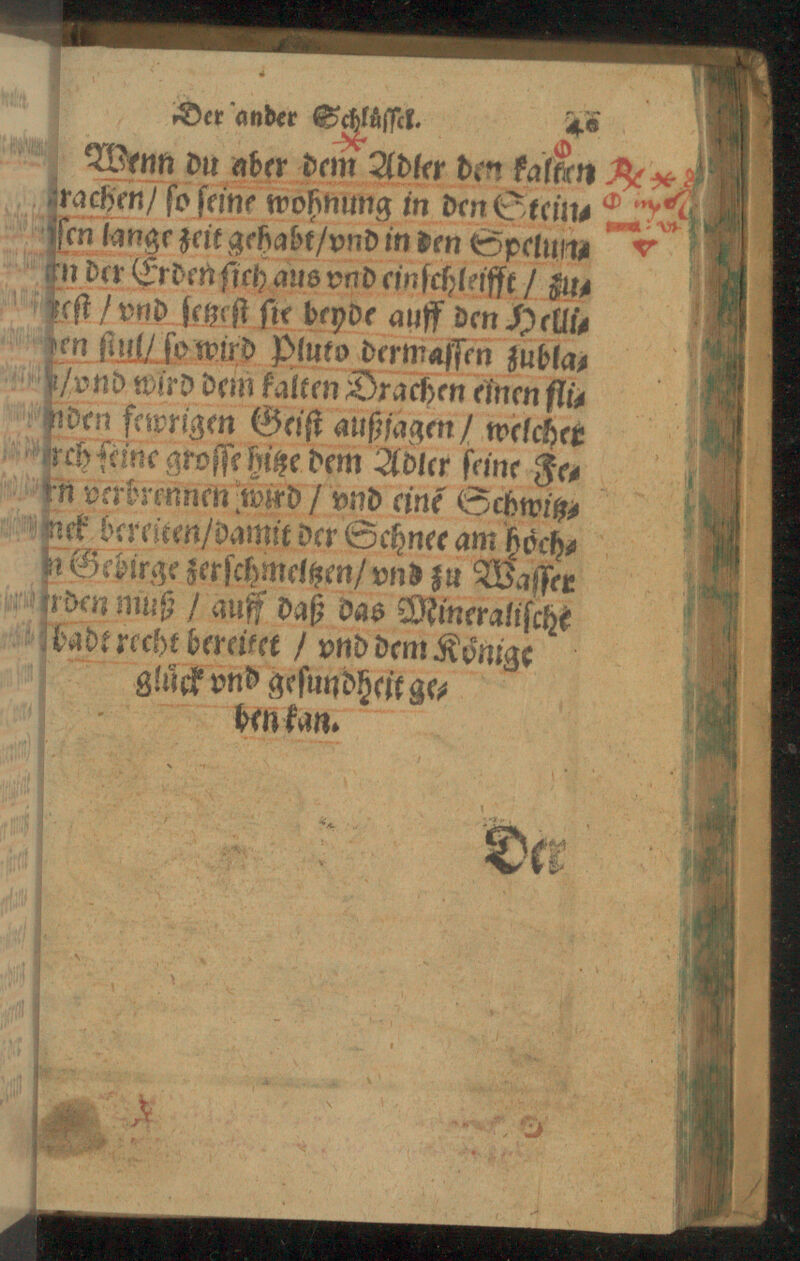 Der ander Schlůſſel. 46
Wenn du aber dem Adler den kalten
rachen/ ſo ſeine wohnung in den Stein⸗
ſen lange zeit gehabt/vnd in den Spelun⸗
in der Erden ſich aus vnd einſchleifft / zu⸗
ſetzeſt ſie beyde auff den Helli⸗
en ſtul/ ſo wird Pluto dermaſſen zubla⸗
/vnd wird dem kalten Drachen einen fli⸗
nden fewrigen Geiſt außjagen / welcher
rch ſeine groſſe hitze dem Adler ſeine Fe⸗
rn verbrennen wird / vnd einē Schwitz⸗
bereiten/damit der Schnee am hoͤch⸗
n Gebirge zerſchmeltzen/ vnd zu Waſſer
rden muß / auff daß das Mineraliſche
badt recht bereitet / vnd dem Koͤnige
gluͤck vnd geſundheit ge⸗
ben kan.
Der